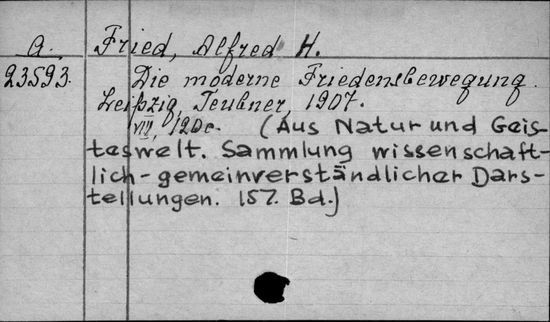 A. Fried, Alfred H.
23593. Die moderne Friedensbewegung.
Leipzig, Teubner, 1907.
VIII, 120 c. (Aus Natur und Geis-
teswelt. Sammlung wissenschaft-
lich-gemeinverständlicher Dars-
tellungen. 157. Bd.)